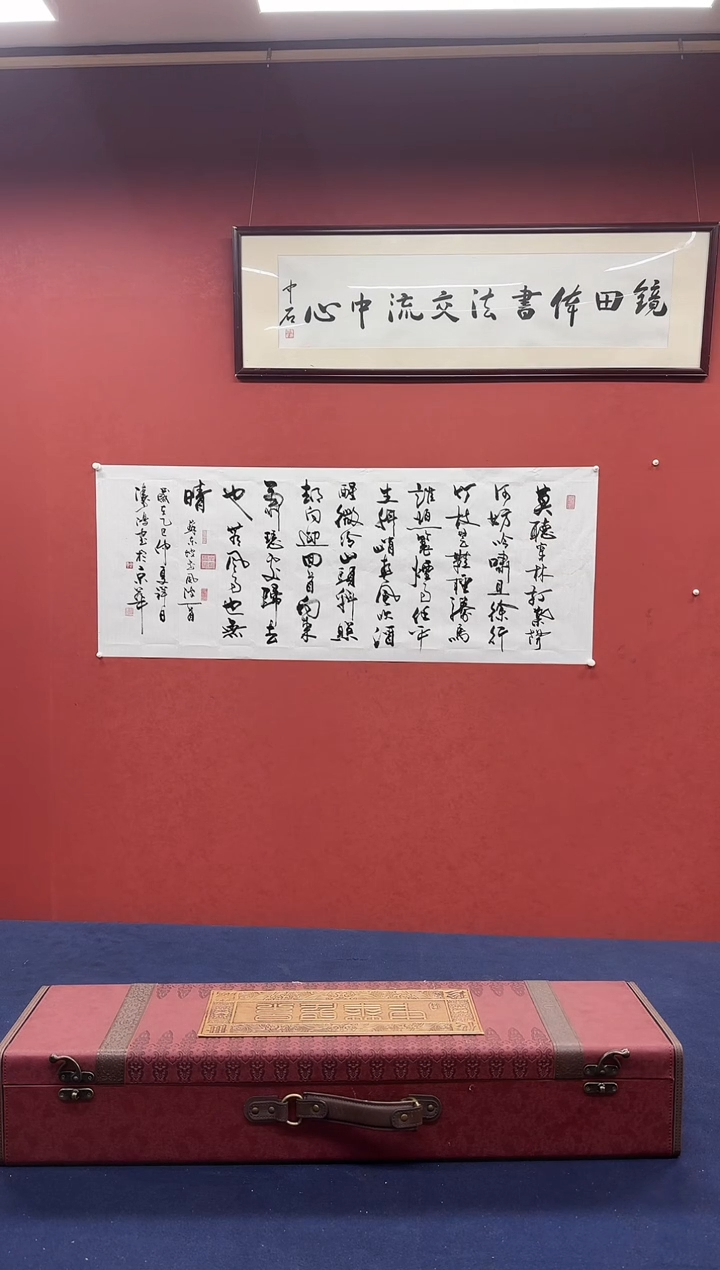 鏡田体書法交流中心
中石
莫聽穿林打葉聲
何妨吟嘯且徐行
竹杖芒鞋輕勝馬
誰怕一蓑煙雨任平
生料峭春風吹酒
醒微冷山頭斜照
却相迎回首向來
蕭瑟處歸去
也無風雨也無
晴
蘇東坡定風波一首
歲在乙巳仲夏祥日
書於京華